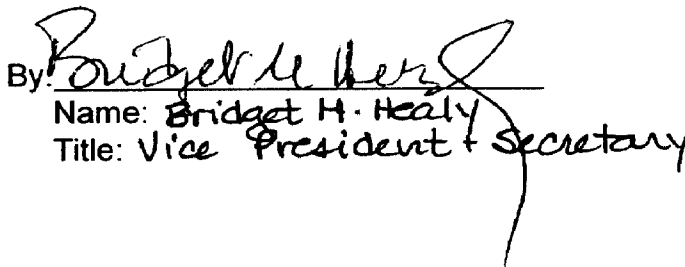 By: Bridget M Healy
Name: Bridget M. Healy
Title: Vice President + Secretary